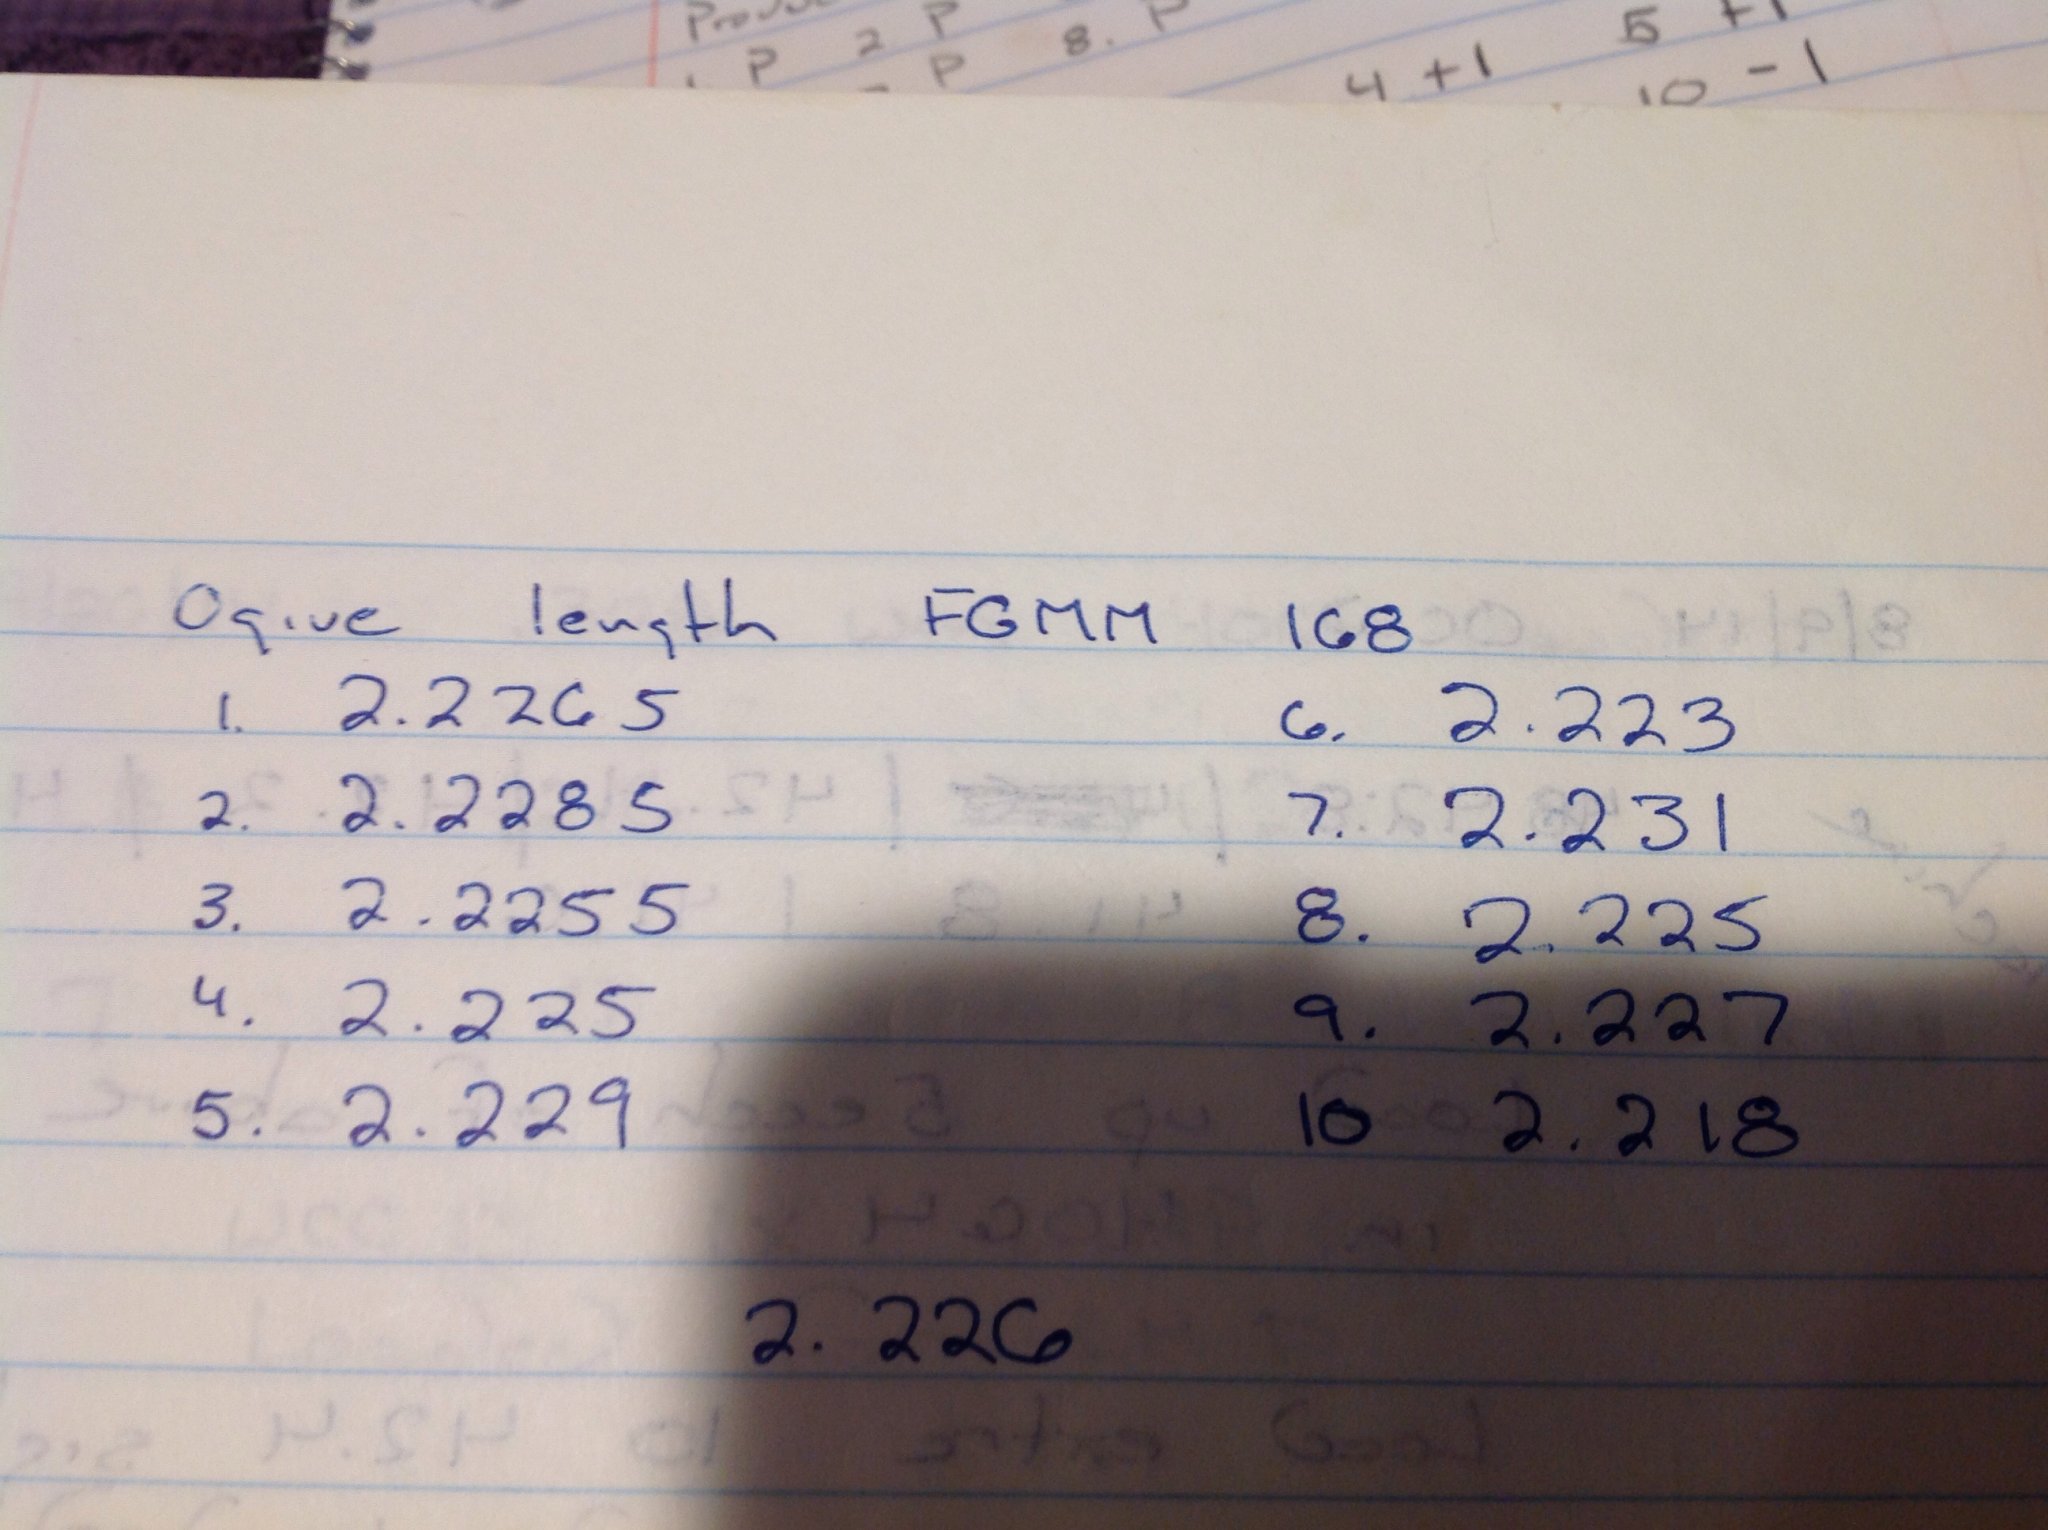 P 2 P 8. P 5 +1
P P 4 +1 10 -1
Ogive length FGMM 168
1. 2.2265 6. 2.223
2. 2.2285 7. 2.231
3. 2.2255 8. 2.225
4. 2.225 9. 2.227
5. 2.229 10 2.218
2.226